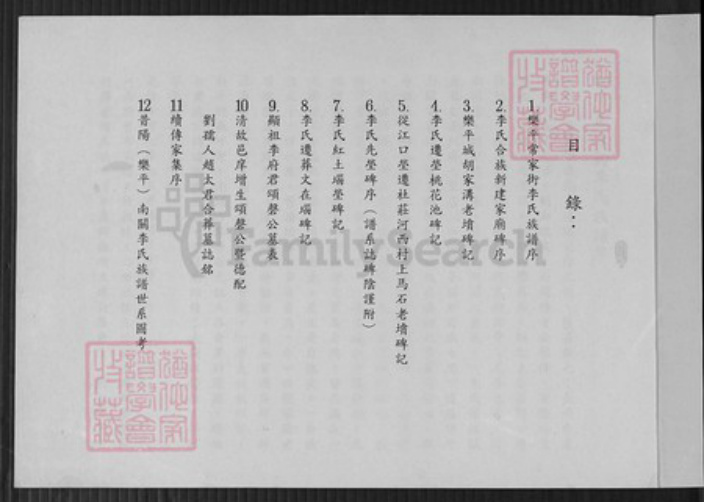 目　錄：
1.樂平常家街李氏族譜序
2.李氏合族新建家廟碑序
3.樂平城胡家溝老墳碑記
4.李氏遷塋桃花池碑記
5.從江口塋遷社莊河西村上馬石老墳碑記
6.李氏先塋碑序（譜系誌碑陰謹附）
7.李氏紅土堖塋碑記
8.李氏遷葬文在堖碑記
9.顯祖李府君頌磬公墓表
10清故邑庠增生頌磬公暨德配
劉孺人趙太君合葬墓誌銘
11續傳家集序
12昔陽（樂平）南關李氏族譜世系圖考
FamilySearch
猶他家
譜學會
特藏
猶他家
譜學會
特藏